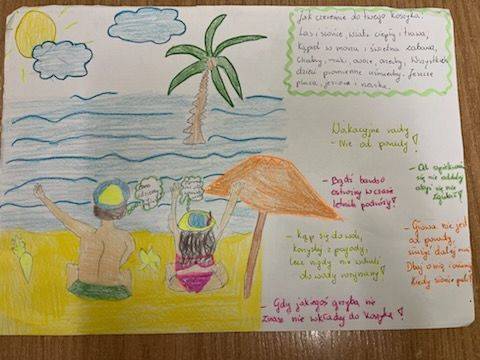 Jak czerwienie do twego koszyka.
Las i słońce, wiatr ciepły i trawa,
Kąpiel w morzu i świetna zabawa,
Chabry, maki, owoce, orzechy. Wszystkich
dzieci promienne uśmiechy. Jeszcze
plaża, jeziora i
Wakacyjne rady
- Nie od parady!
- Bądź bardzo
ostrożny w czasie
letnich podróży!
- Od opiekunów
się nie oddalaj
abyś się nie
zgubił!
- Kąp się do woli,
korzystaj z pogody,
lecz nigdy nie wchodź
do wody
- Głowa nie jest
od parady,
służyć dalej ma.
Dbaj o nią i
kiedy słońce pali!
- Gdy jakiegoś grzyba nie
znasz nie wkładaj do koszyka!